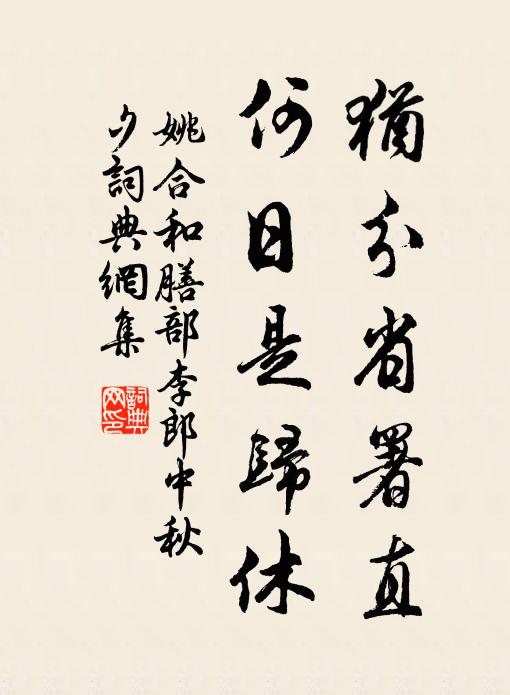 猶分省署直
何日是歸休
姚合和膳部李郎中秋
夕詞典網集
詞典
网印